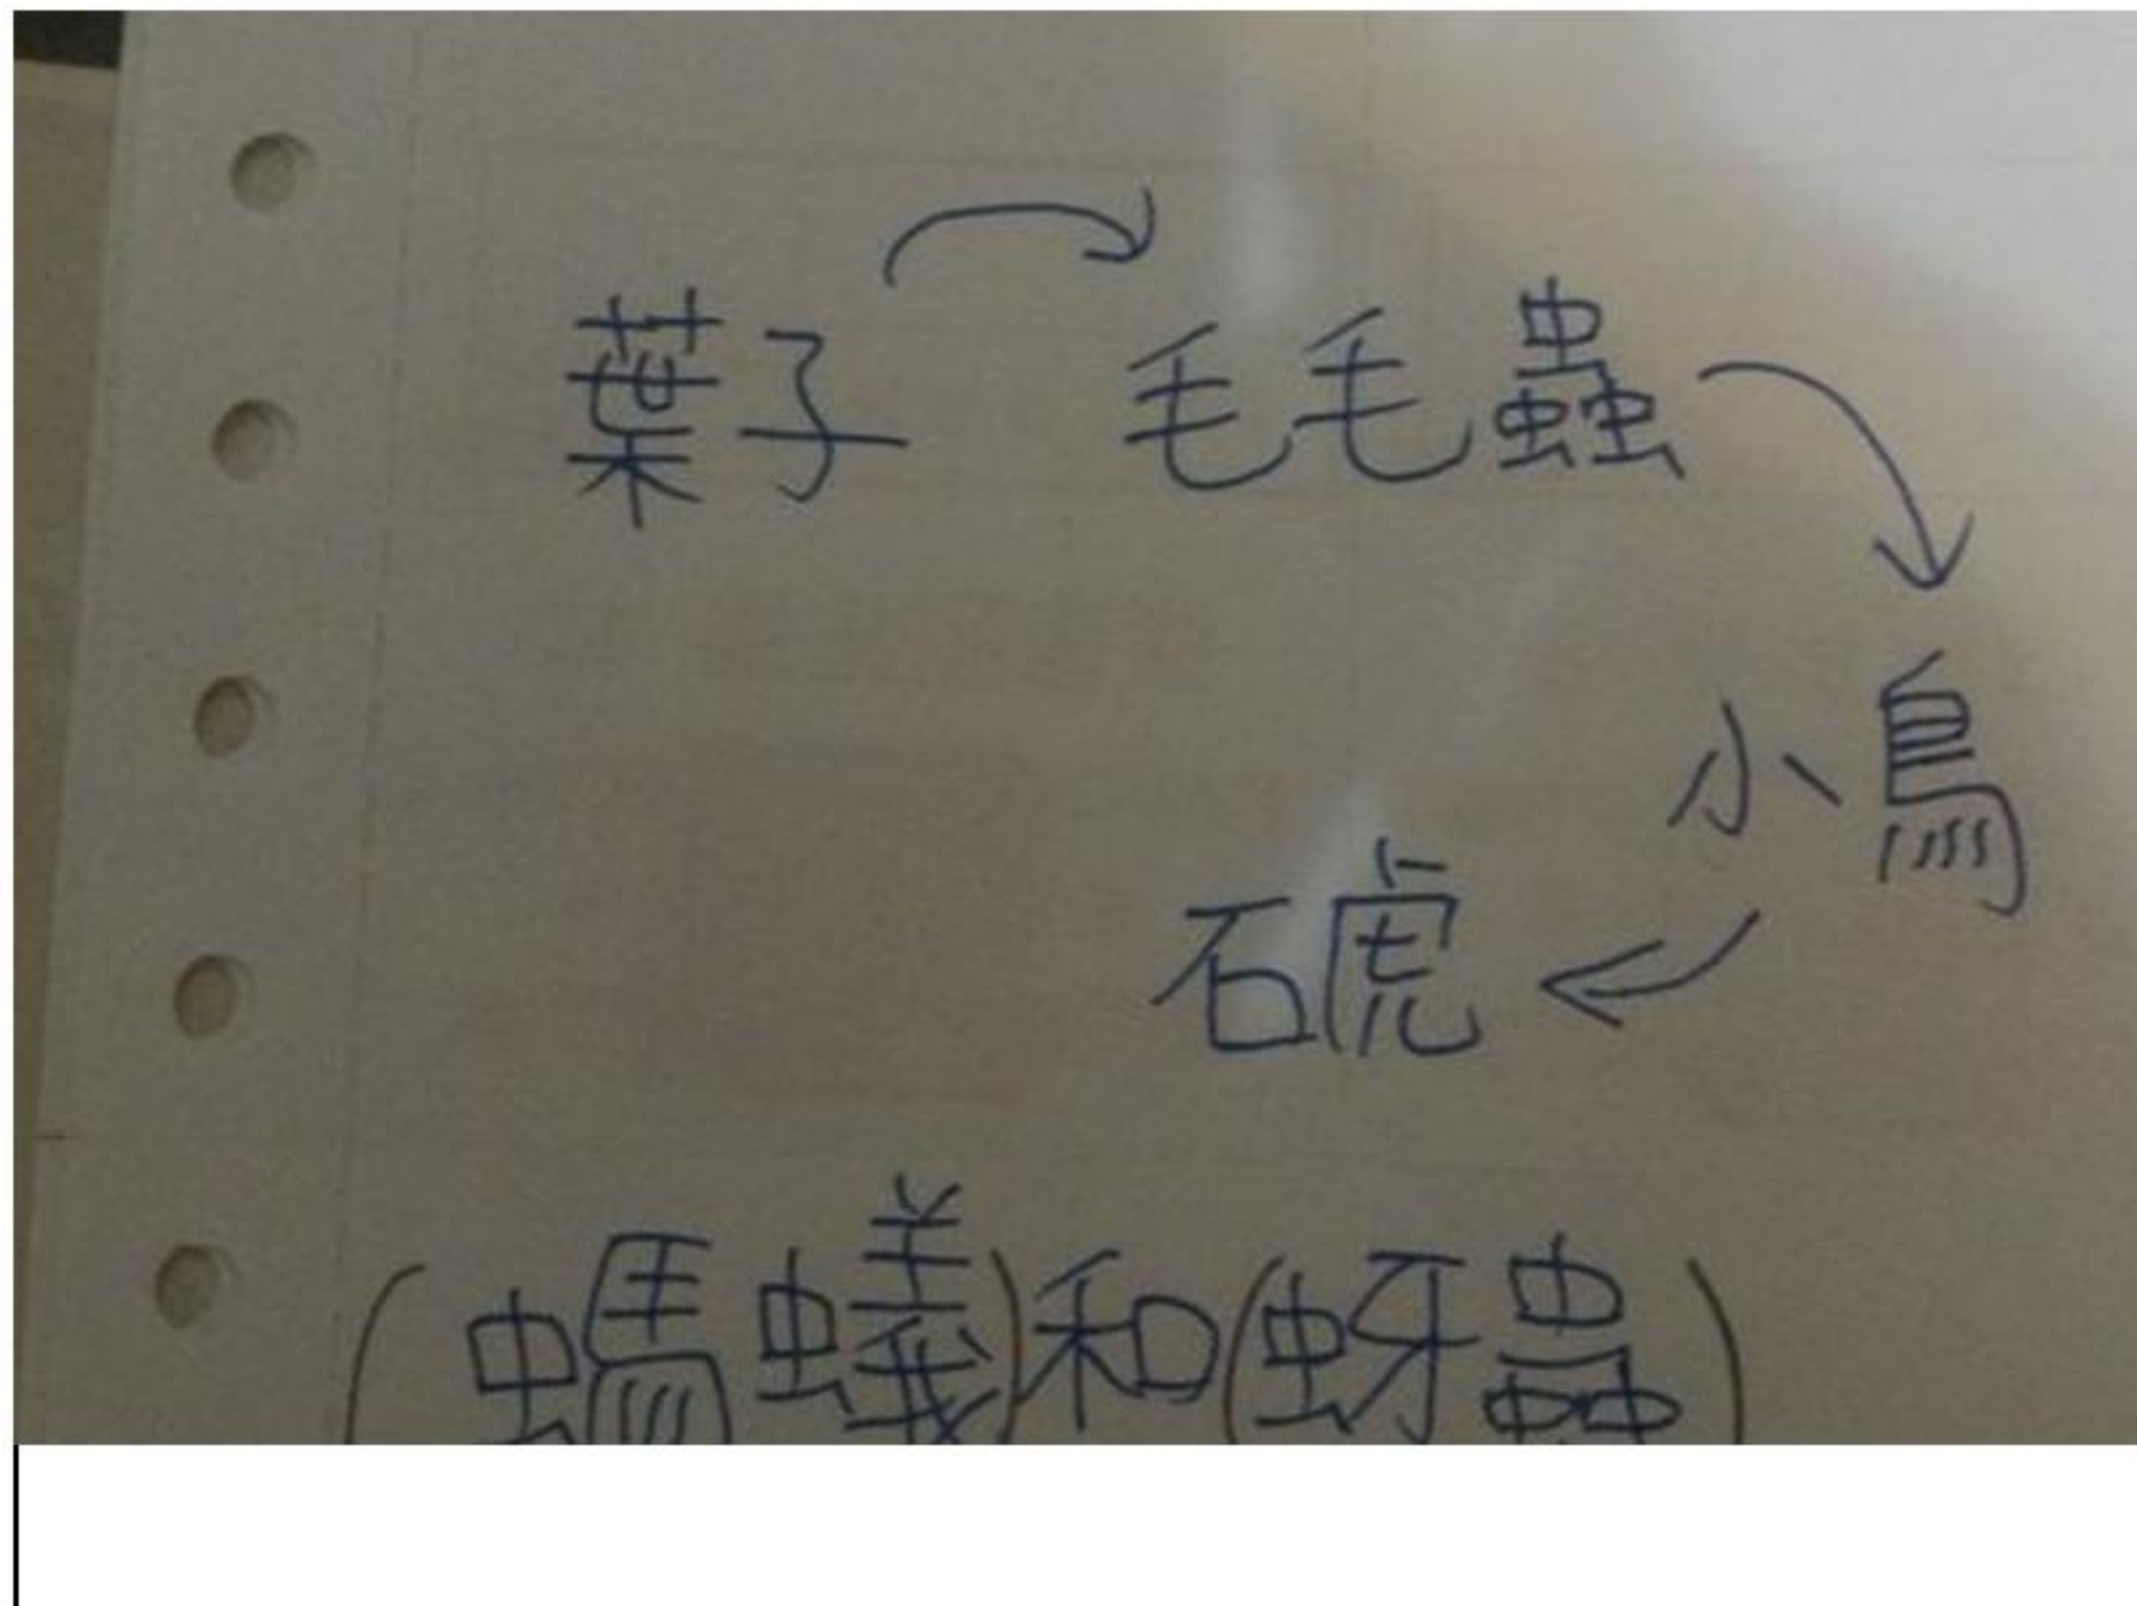 葉子 毛毛蟲
小鳥
石虎
(螞蟻)和(蚜蟲)